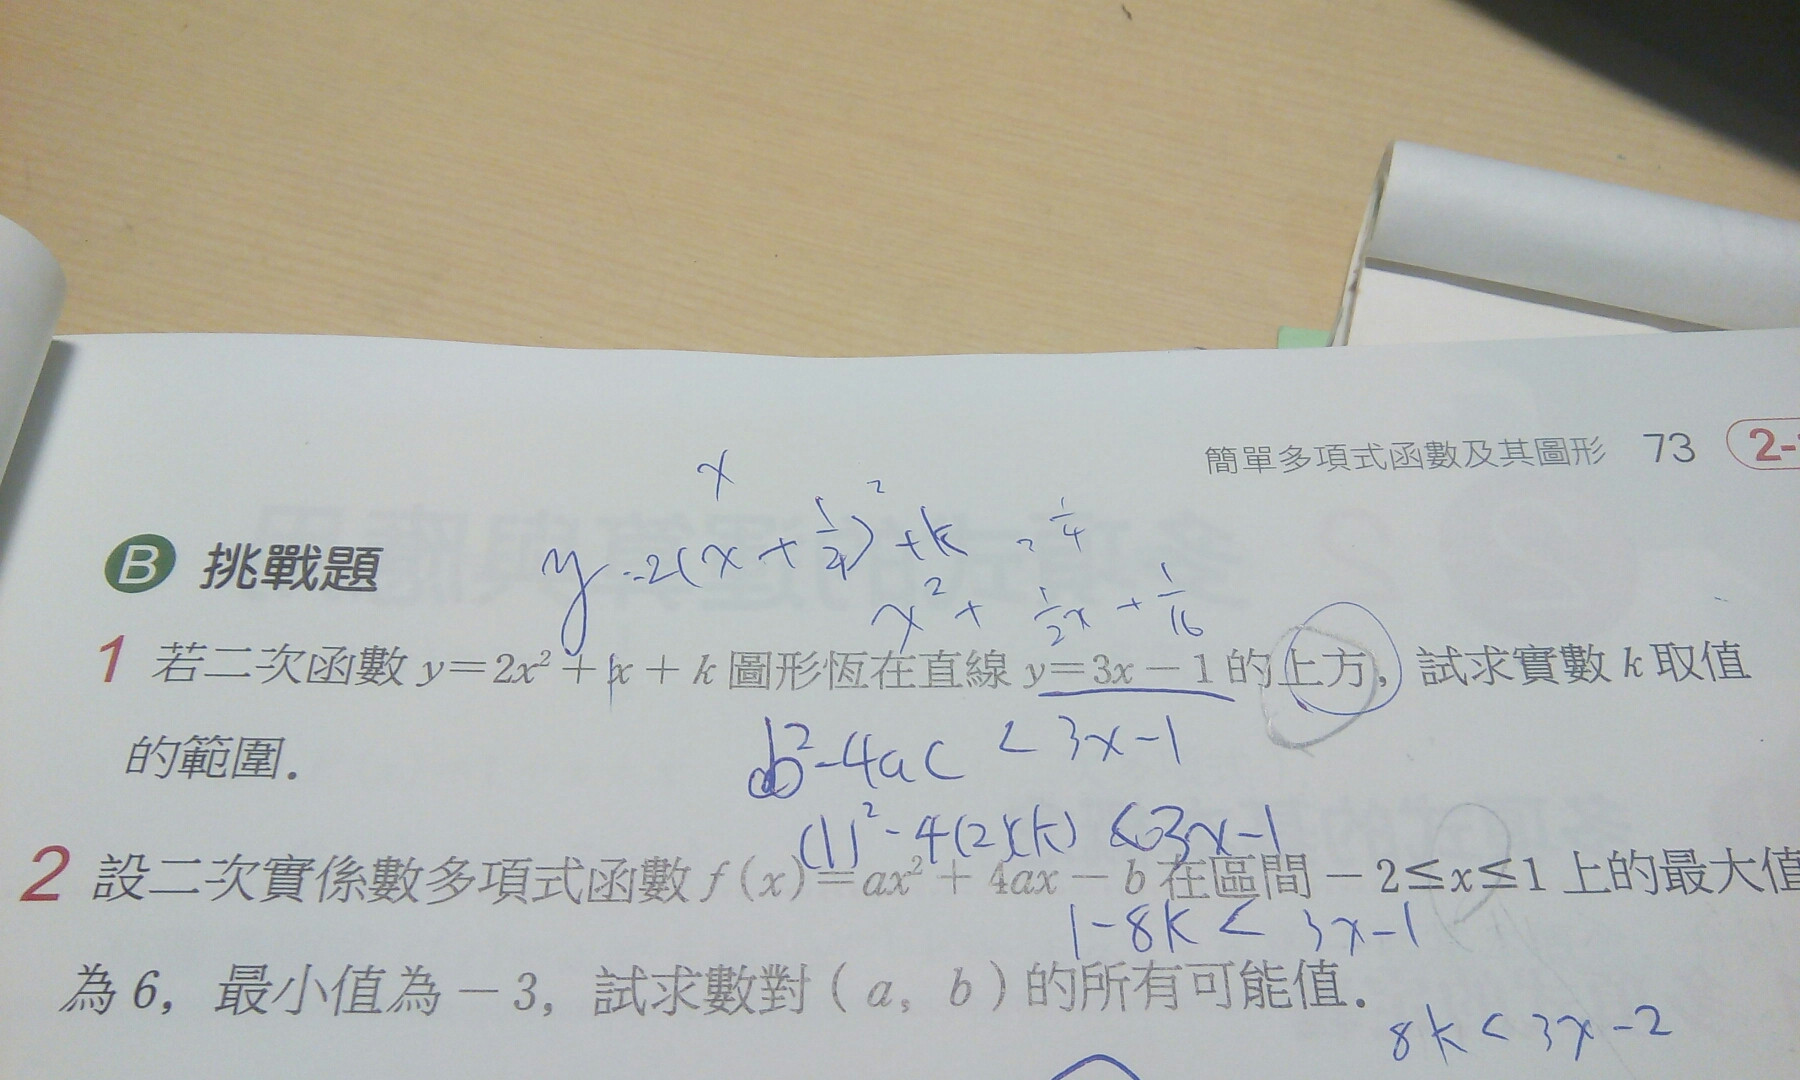 簡單多項式函數及其圖形 73 2-
x
B 挑戰題
y=2(x+1/4)²+k
1/4
x²+1/2x+1/16
1 若二次函數 y=2x²+x+k 圖形恆在直線 y=3x-1 的上方，試求實數 k 取值
的範圍．
b²-4ac < 3x-1
(1)²-4(2)(k) < 3x-1
2 設二次實係數多項式函數 f(x)=ax²+4ax-b 在區間 -2≤x≤1 上的最大值
1-8k < 3x-1
為 6，最小值為 -3，試求數對（a，b）的所有可能值．
8k < 3x-2